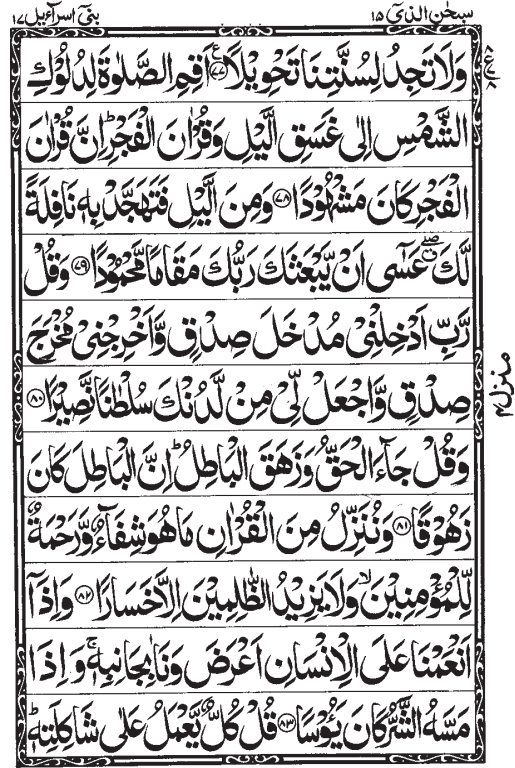 سبحٰن الذیٓ ۱۵
بنیٓ اسرآءیل ۱۷
وَلَا تَجِدُ لِسُنَّتِنَا تَحْوِيْلًا ۝۷۷ اَقِمِ الصَّلٰوةَ لِدُلُوْكِ
الشَّمْسِ اِلٰى غَسَقِ الَّيْلِ وَقُرْاٰنَ الْفَجْرِ ؕ اِنَّ قُرْاٰنَ
الْفَجْرِ كَانَ مَشْهُوْدًا ۝۷۸ وَمِنَ الَّيْلِ فَتَهَجَّدْ بِهٖ نَافِلَةً
لَّكَ ۖ عَسٰٓى اَنْ يَّبْعَثَكَ رَبُّكَ مَقَامًا مَّحْمُوْدًا ۝۷۹ وَقُلْ
رَّبِّ اَدْخِلْنِيْ مُدْخَلَ صِدْقٍ وَّاَخْرِجْنِيْ مُخْرَجَ
صِدْقٍ وَّاجْعَلْ لِّيْ مِنْ لَّدُنْكَ سُلْطٰنًا نَّصِيْرًا ۝۸۰
وَقُلْ جَآءَ الْحَقُّ وَزَهَقَ الْبَاطِلُ ؕ اِنَّ الْبَاطِلَ كَانَ
زَهُوْقًا ۝۸۱ وَنُنَزِّلُ مِنَ الْقُرْاٰنِ مَا هُوَ شِفَآءٌ وَّرَحْمَةٌ
لِّلْمُؤْمِنِيْنَ ۙ وَلَا يَزِيْدُ الظّٰلِمِيْنَ اِلَّا خَسَارًا ۝۸۲ وَاِذَآ
اَنْعَمْنَا عَلَى الْاِنْسَانِ اَعْرَضَ وَنَاٰ بِجَانِبِهٖ ۚ وَاِذَا
مَسَّهُ الشَّرُّ كَانَ يَـُٔوْسًا ۝۸۳ قُلْ كُلٌّ يَّعْمَلُ عَلٰى شَاكِلَتِهٖ ؕ
منزل ۴